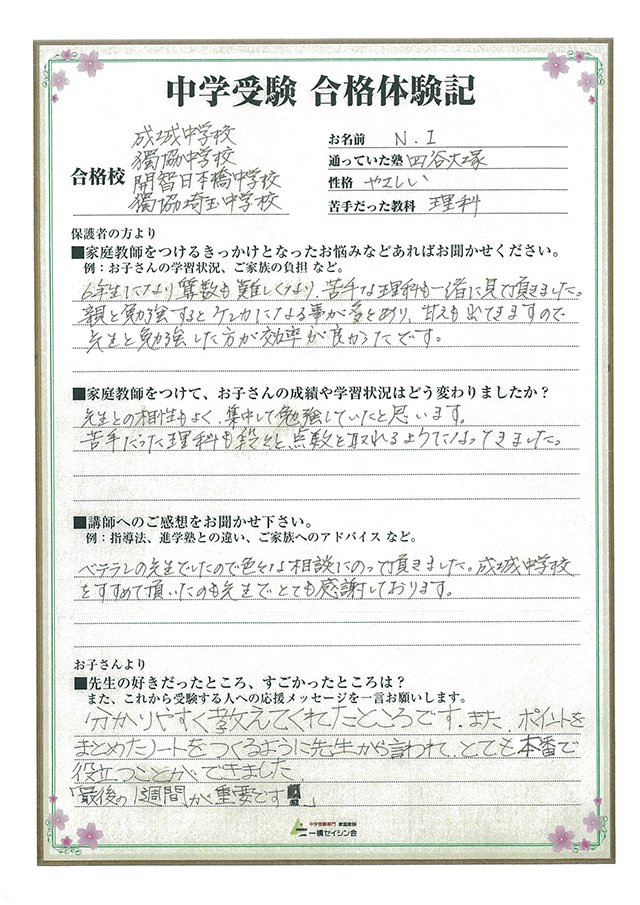 中学受験 合格体験記
合格校
成城中学校
獨協中学校
開智日本橋中学校
獨協埼玉中学校
お名前 N.I
通っていた塾 四谷大塚
性格 やさしい
苦手だった教科 理科
保護者の方より
■家庭教師をつけるきっかけとなったお悩みなどあればお聞かせください。
例：お子さんの学習状況、ご家族の負担 など。
6年生になり算数も難しくなり、苦手な理科も一緒に見て頂きました。
親と勉強するとケンカになる事が多々あり、甘えも出てきますので
先生と勉強した方が効率が良かったです。
■家庭教師をつけて、お子さんの成績や学習状況はどう変わりましたか？
先生との相性もよく、集中して勉強していたと思います。
苦手だった理科も段々と点数を取れるようになってきました。
■講師へのご感想をお聞かせ下さい。
例：指導法、進学塾との違い、ご家族へのアドバイス など。
ベテランの先生でしたので色々な相談にのって頂きました。成城中学校
をすすめて頂いたのも先生でとても感謝しております。
お子さんより
■先生の好きだったところ、すごかったところは？
また、これから受験する人への応援メッセージを一言お願いします。
分かりやすく教えてくれたところです。また、ポイントを
まとめたノートをつくるように先生から言われて、とても本番で
役立つことができました
「最後の1週間が重要です」
中学受験専門 家庭教師
一橋セイシン会